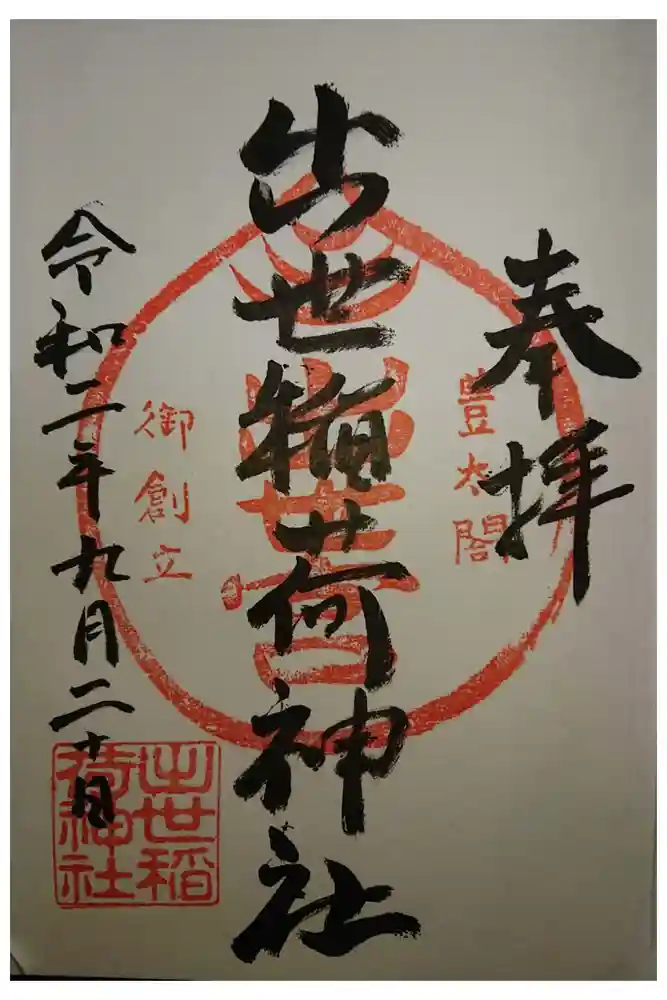 奉拝
豊太閤
出世稲荷神社
出世
宮
御創立
令和二年九月二十日
出世稲
荷神社